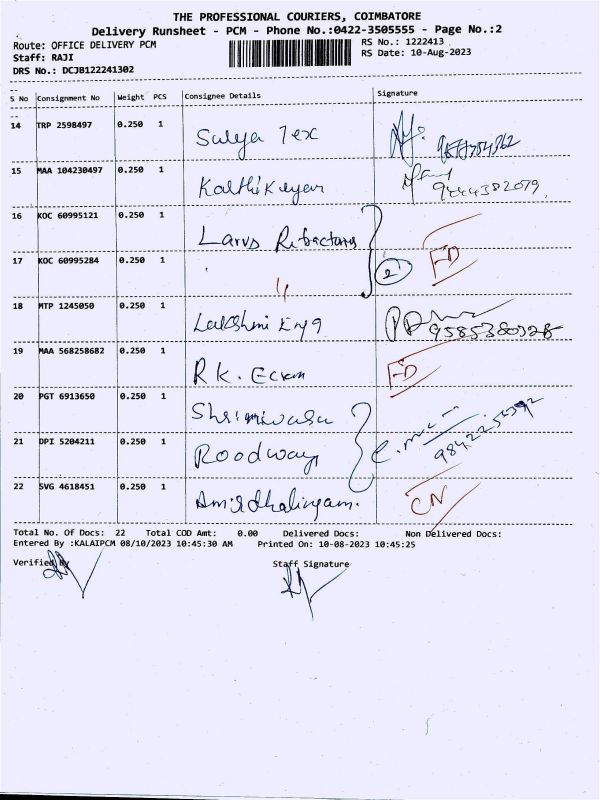 THE PROFESSIONAL COURIERS, COIMBATORE
Delivery Runsheet - PCM - Phone No.:0422-3505555 - Page No.:2
Route: OFFICE DELIVERY PCM
RS No.: 1222413
Staff: RAJI
RS Date: 10-Aug-2023
DRS No.: DCJB122241302
S No Consignment No Weight PCS Consignee Details Signature
14 TRP 2598497 0.250 1 Surya Tex
15 MAA 104230497 0.250 1 Karthikeyan 9444382079
16 KOC 60995121 0.250 1 Larvs
17 KOC 60995284 0.250 1 2 FD
18 MTP 1245050 0.250 1 Lakshmi Eng
19 MAA 568258682 0.250 1 R K. FD
20 PGT 6913650 0.250 1 Shrinivasa
21 DPI 5204211 0.250 1 Roodways
22 SVG 4618451 0.250 1 Amirdhalingam. CN
Total No. Of Docs: 22 Total COD Amt: 0.00 Delivered Docs: Non Delivered Docs:
Entered By :KALAIPCM 08/10/2023 10:45:30 AM Printed On: 10-08-2023 10:45:25
Verified By Staff Signature